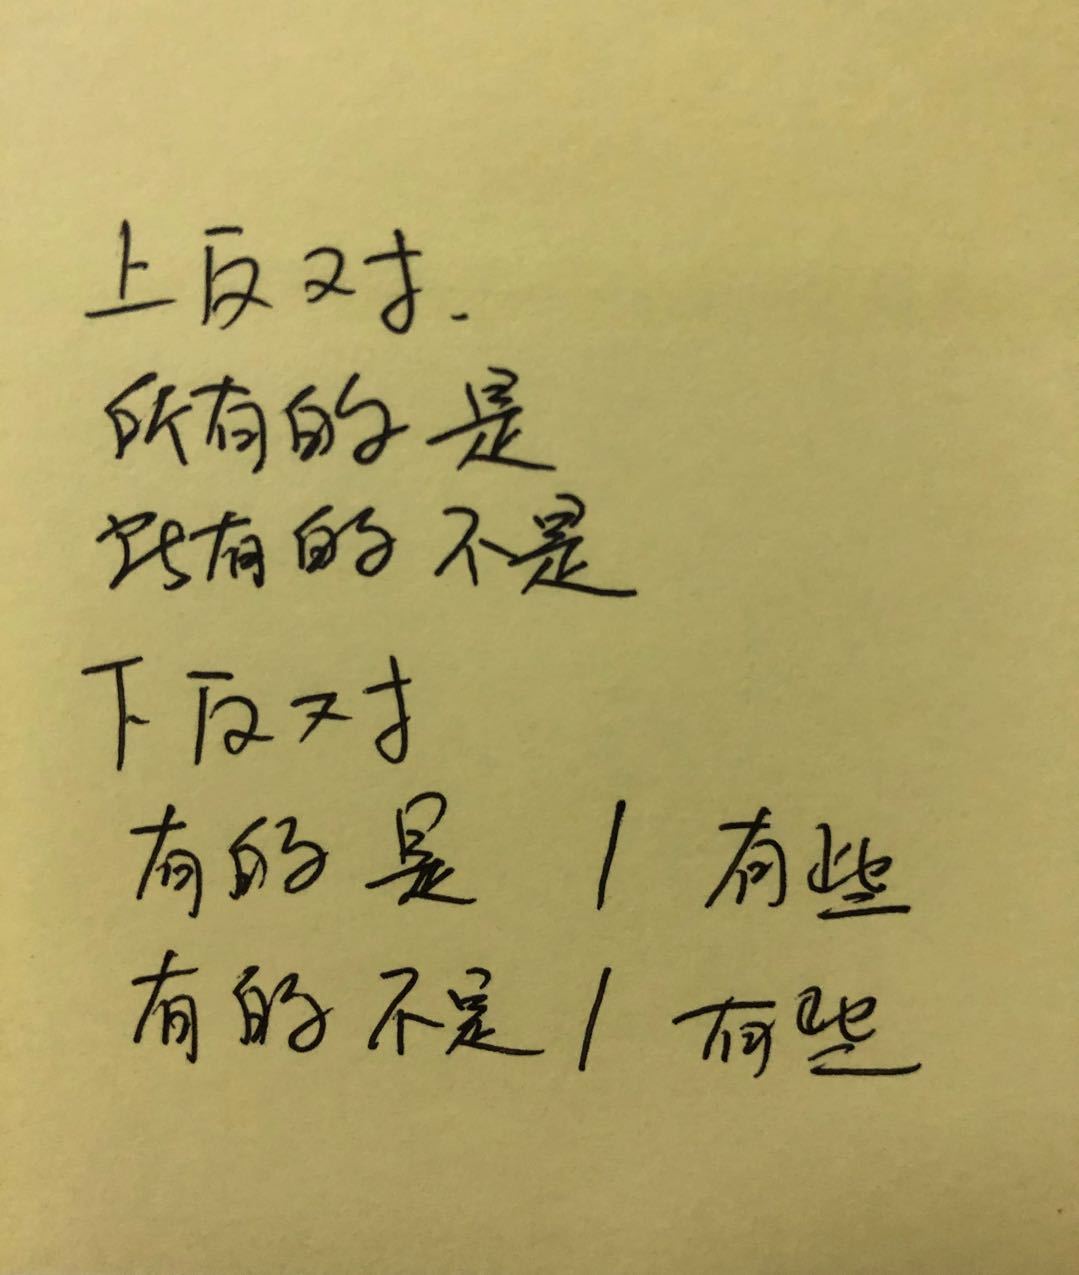 上反对.
所有的是
所有的不是
下反对
有的是 / 有些
有的不是 / 有些